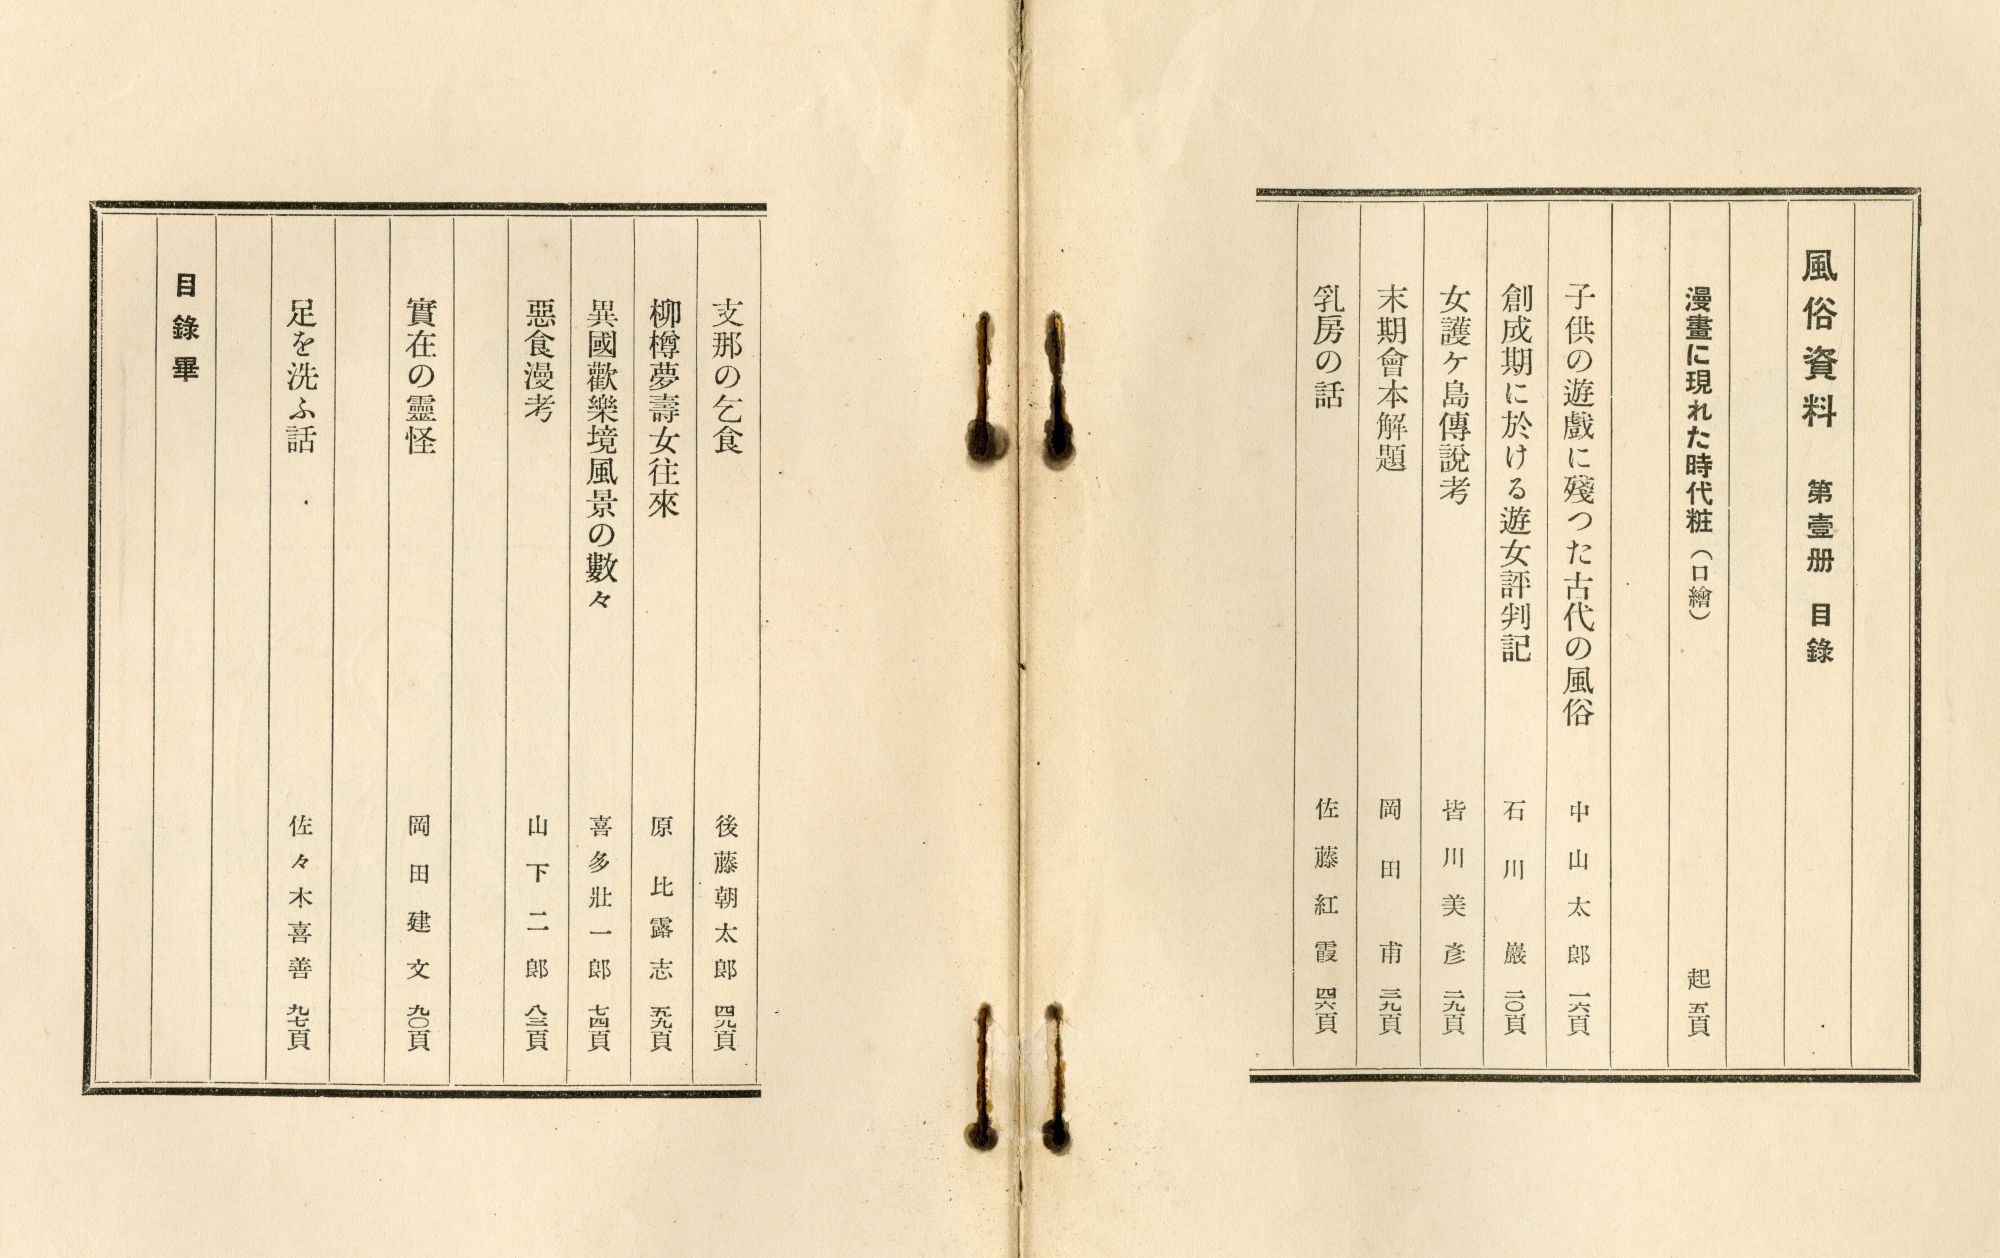 風俗資料 第壹册 目錄
漫畫に現れた時代粧（口繪） 起五頁
子供の遊戲に殘つた古代の風俗 中山太郎 一六頁
創成期に於ける遊女評判記 石川巖 二〇頁
女護ケ島傳說考 皆川美彦 二九頁
末期會本解題 岡田甫 三九頁
乳房の話 佐藤紅霞 四六頁
支那の乞食 後藤朝太郎 四九頁
柳樽夢壽女往來 原比露志 五九頁
異國歡樂境風景の數々 喜多壯一郎 七四頁
惡食漫考 山下二郎 八三頁
實在の靈怪 岡田建文 九〇頁
足を洗ふ話 佐々木喜善 九七頁
目錄畢